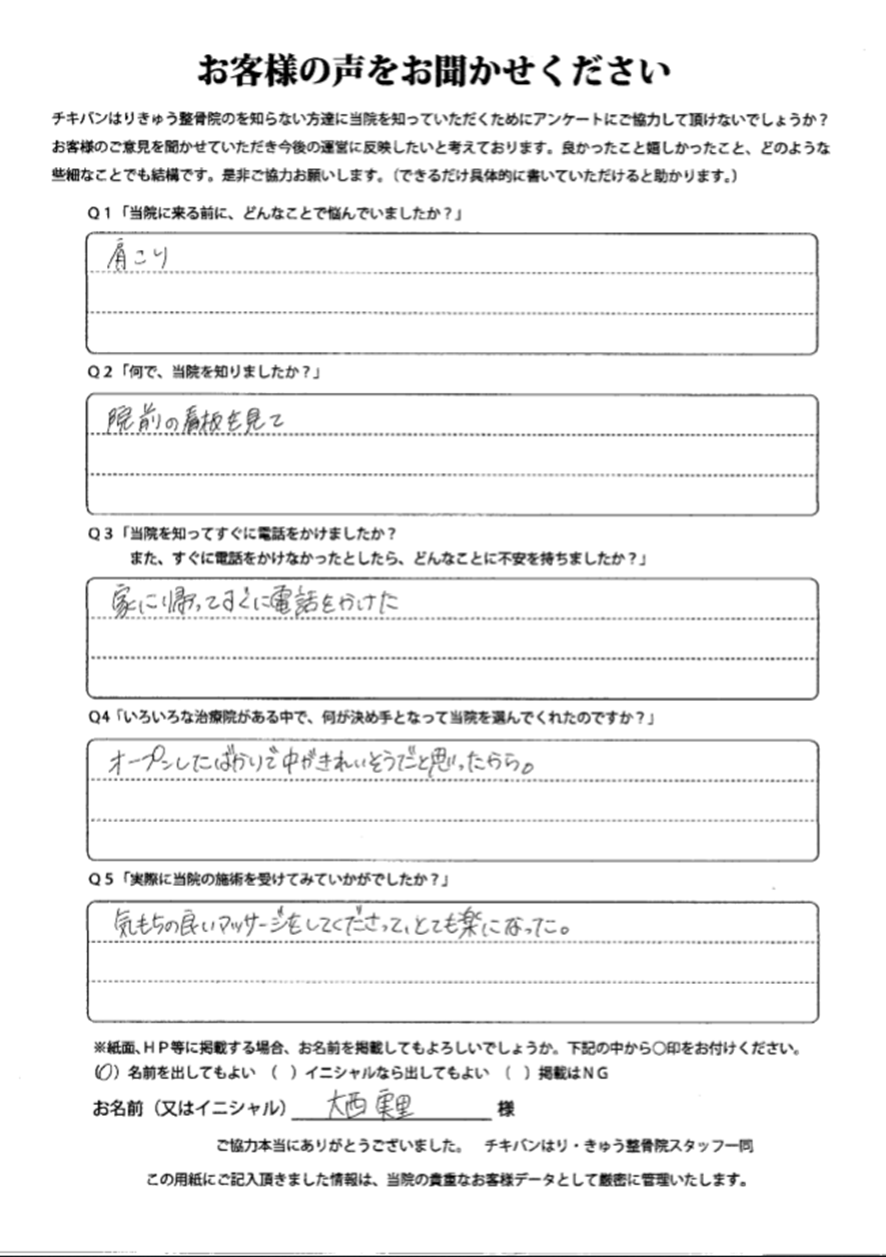 お客様の声をお聞かせください
チキバンはりきゅう整骨院のを知らない方達に当院を知っていただくためにアンケートにご協力して頂けないでしょうか?
お客様のご意見を聞かせていただき今後の運営に反映したいと考えております。良かったこと嬉しかったこと、どのような
些細なことでも結構です。是非ご協力お願いします。(できるだけ具体的に書いていただけると助かります。)
Q1「当院に来る前に、どんなことで悩んでいましたか?」
肩こり
Q2「何で、当院を知りましたか?」
院前の看板を見て
Q3「当院を知ってすぐに電話をかけましたか?
また、すぐに電話をかけなかったとしたら、どんなことに不安を持ちましたか?」
家に帰ってすぐに電話をかけた
Q4「いろいろな治療院がある中で、何が決め手となって当院を選んでくれたのですか?」
オープンしたばかりで中がきれいそうだと思ったから。
Q5「実際に当院の施術を受けてみていかがでしたか?」
気もちの良いマッサージをしてくださって、とても楽になった。
※紙面、HP等に掲載する場合、お名前を掲載してもよろしいでしょうか。下記の中から○印をお付けください。
(○)名前を出してもよい ( )イニシャルなら出してもよい ( )掲載はNG
お名前(又はイニシャル) 大西 実里 様
ご協力本当にありがとうございました。 チキバンはり・きゅう整骨院スタッフ一同
この用紙にご記入頂きました情報は、当院の貴重なお客様データとして厳密に管理いたします。